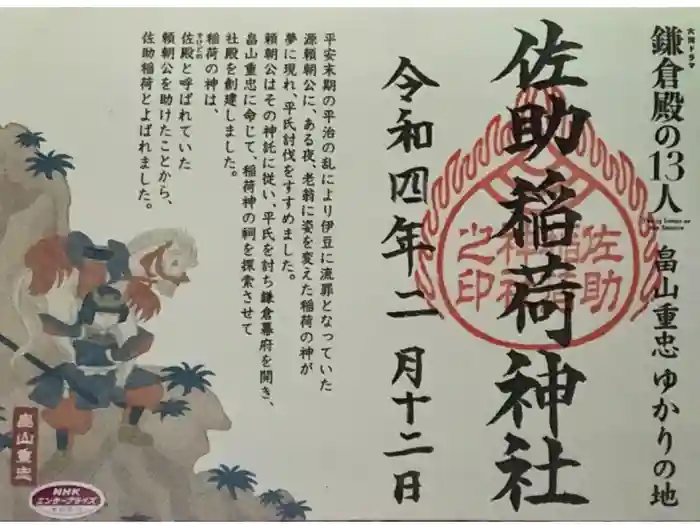 大河ドラマ
鎌倉殿の13人
畠山重忠 ゆかりの地
佐助稲荷神社
佐助稲荷神社之印
令和四年二月十二日
平安末期の平治の乱により伊豆に流罪となっていた
源頼朝公に、ある夜、老翁に姿を変えた稲荷の神が
夢に現れ、平氏討伐をすすめました。
頼朝公はその神託に従い、平氏を討ち鎌倉幕府を開き、
畠山重忠に命じて、稲荷神の祠を探索させて
社殿を創建しました。
稲荷の神は、
佐殿と呼ばれていた
すけどの
頼朝公を助けたことから、
佐助稲荷とよばれました。
畠山重忠
NHK
エンタープライズ